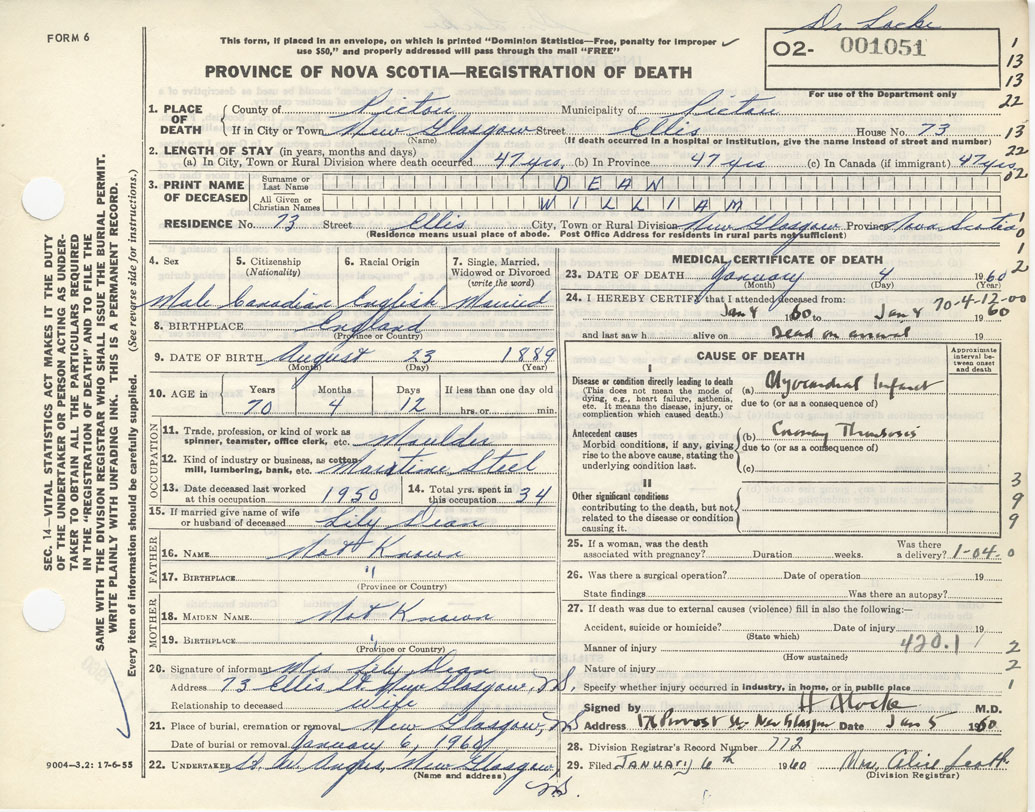 Dr Locke
FORM 6
This form, if placed in an envelope, on which is printed "Dominion Statistics—Free, penalty for improper
use $50," and properly addressed will pass through the mail "FREE"
O2- 001051
For use of the Department only
PROVINCE OF NOVA SCOTIA—REGISTRATION OF DEATH
1. PLACE OF DEATH { County of Pictou Municipality of Pictou
If in City or Town New Glasgow Street Ellis House No. 73
(Name) (If death occurred in a hospital or institution, give the name instead of street and number)
2. LENGTH OF STAY (in years, months and days)
(a) In City, Town or Rural Division where death occurred 47 yrs, (b) In Province 47 yrs (c) In Canada (if immigrant) 47 yrs
3. PRINT NAME OF DECEASED Surname or Last Name DEAN
All Given or Christian Names WILLIAM
RESIDENCE No. 73 Street Ellis City, Town or Rural Division New Glasgow Province Nova Scotia
(Residence means usual place of abode. Post Office Address for residents in rural parts not sufficient)
SEC. 14—VITAL STATISTICS ACT MAKES IT THE DUTY
OF THE UNDERTAKER OR PERSON ACTING AS UNDER-
TAKER TO OBTAIN ALL THE PARTICULARS REQUIRED
IN THE "REGISTRATION OF DEATH" AND TO FILE THE
SAME WITH THE DIVISION REGISTRAR WHO SHALL ISSUE THE BURIAL PERMIT.
WRITE PLAINLY WITH UNFADING INK. THIS IS A PERMANENT RECORD.
Every item of information should be carefully supplied. (See reverse side for instructions.)
4. Sex 5. Citizenship (Nationality) 6. Racial Origin 7. Single, Married, Widowed or Divorced (write the word)
Male Canadian English Married
8. BIRTHPLACE England
(Province or Country)
9. DATE OF BIRTH August 23 1889
(Month) (Day) (Year)
10. AGE in Years Months Days If less than one day old
70 4 12 hrs. or min.
OCCUPATION
11. Trade, profession, or kind of work as spinner, teamster, office clerk, etc. Moulder
12. Kind of industry or business, as cotton-mill, lumbering, bank, etc. Maritime Steel
13. Date deceased last worked at this occupation 1950 14. Total yrs. spent in this occupation 34
15. If married give name of wife or husband of deceased Lily Dean
FATHER
16. NAME Not Known
17. BIRTHPLACE "
(Province or Country)
MOTHER
18. MAIDEN NAME Not Known
19. BIRTHPLACE "
(Province or Country)
20. Signature of informant Mrs Lily Dean
Address 73 Ellis St New Glasgow, N.S.
Relationship to deceased Wife
21. Place of burial, cremation or removal New Glasgow, N.S.
Date of burial or removal January 6, 1960
22. UNDERTAKER New Glasgow
(Name and address) N.S.
9004—3.2: 17-6-55
MEDICAL CERTIFICATE OF DEATH
23. DATE OF DEATH January 4 1960
(Month) (Day) (Year)
24. I HEREBY CERTIFY that I attended deceased from: 70-4-12-00
Jan 4 1960 to Jan 4 1960
and last saw h alive on Dead on arrival 19
CAUSE OF DEATH
Approximate interval between onset and death
I
Disease or condition directly leading to death
(This does not mean the mode of dying, e.g., heart failure, asthenia, etc. It means the disease, injury, or complication which caused death.)
(a) Myocardial Infarct
due to (or as a consequence of)
Antecedent causes
Morbid conditions, if any, giving rise to the above cause, stating the underlying condition last.
(b) Coronary Thrombosis
due to (or as a consequence of)
(c)
II
Other significant conditions
contributing to the death, but not related to the disease or condition causing it.
25. If a woman, was the death associated with pregnancy? Duration weeks. Was there a delivery? 1-04-0
26. Was there a surgical operation? Date of operation 19
State findings Was there an autopsy?
27. If death was due to external causes (violence) fill in also the following:—
Accident, suicide or homicide? Date of injury 19
(State which)
Manner of injury 420.1
(How sustained)
Nature of injury
Specify whether injury occurred in industry, in home, or in public place
Signed by H Locke M.D.
Address Provost St. New Glasgow Date Jan 5 1960
28. Division Registrar's Record Number 772
29. Filed JANUARY 6th 1960 Mrs. Alice
(Division Registrar)
1
13
13
22
13
22
02
1
0
1
2
3
9
9
2
2
1